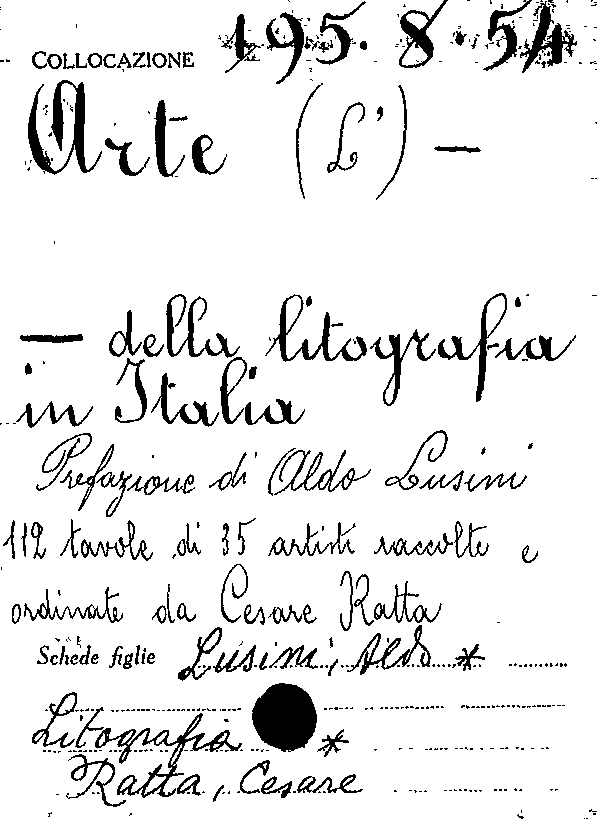 COLLOCAZIONE 195.8.54
Arte (L') —
— della litografia
in Italia
Prefazione di Aldo Lusini
112 tavole di 35 artisti raccolte e
ordinate da Cesare Ratta
Schede figlie Lusini, Aldo *
Litografia *
Ratta, Cesare